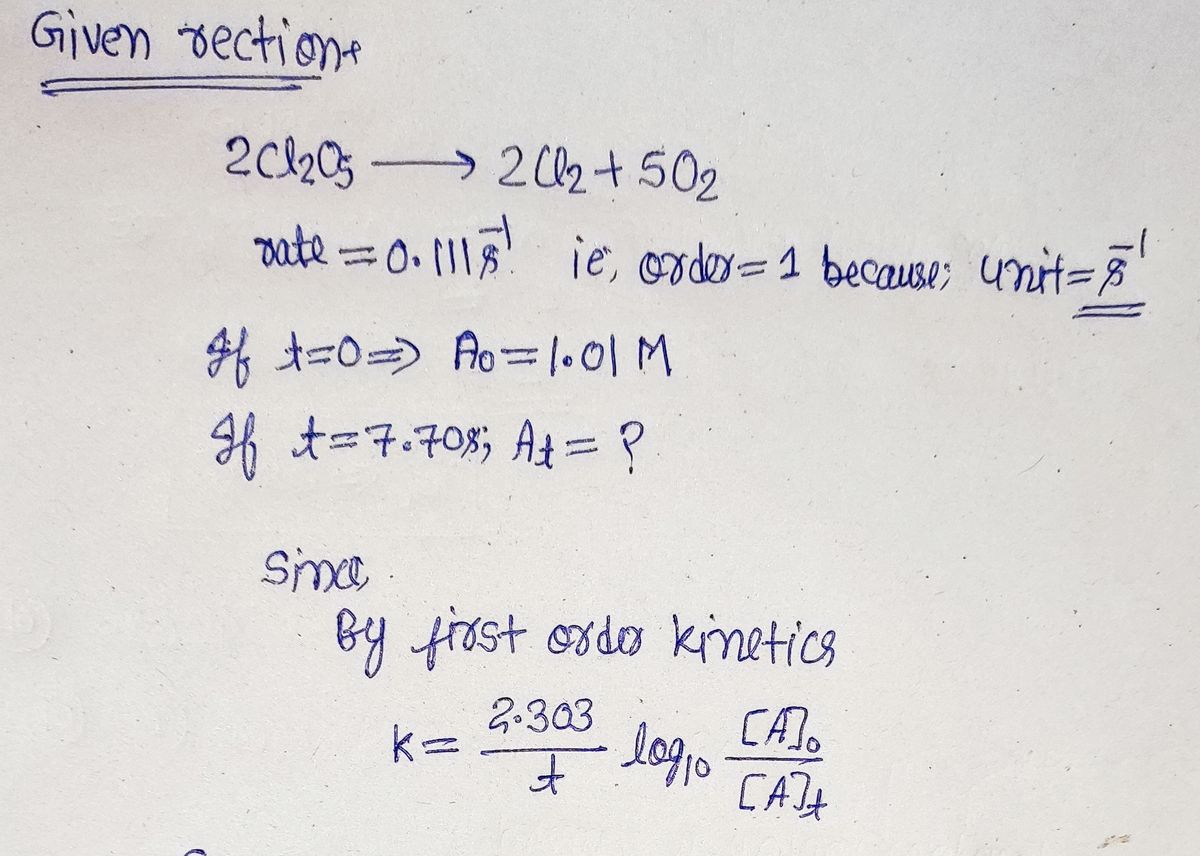 Given rection:
2Cl₂O₅ ⟶ 2Cl₂ + 5O₂
rate = 0.111 s⁻¹. ie, order = 1 because; unit = s⁻¹
If t=0 ⇒ A₀ = 1.01 M
If t = 7.70s; Aₜ = ?
Since,
By first order kinetics
k = 2.303/t log₁₀ [A]₀/[A]ₜ